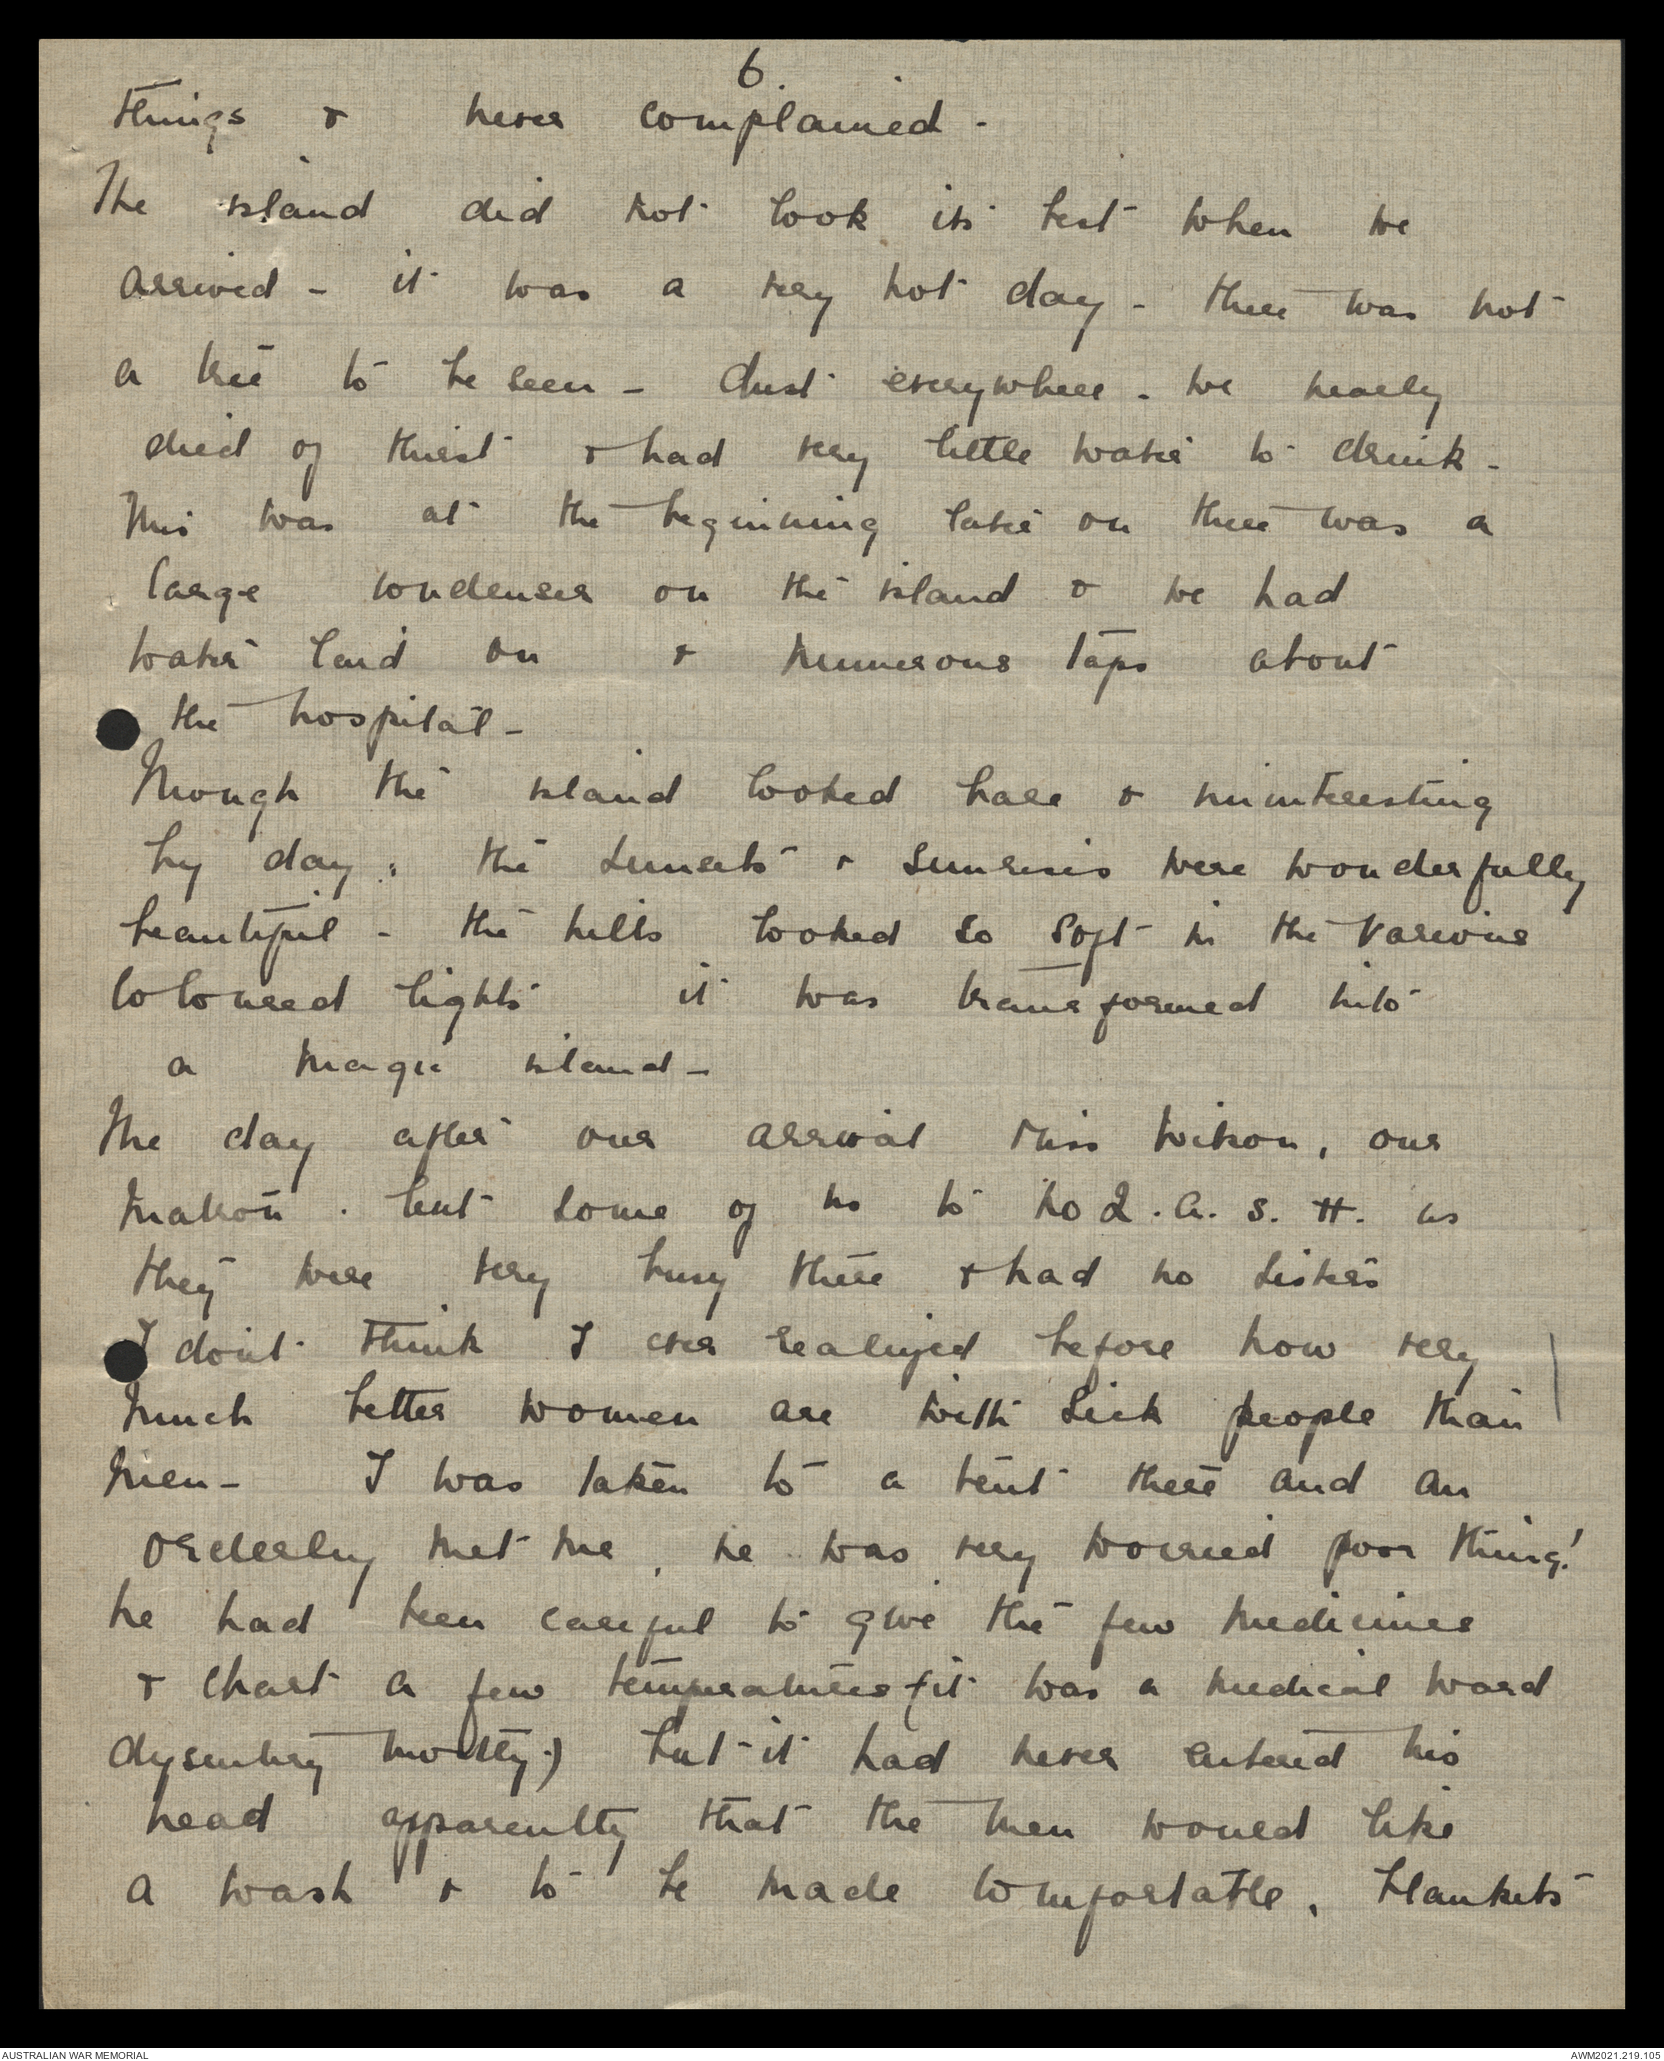 6.
things & never complained -
The island did not look its best when we
arrived - it was a very hot day - there was not
a tree to be seen - dust everywhere - we nearly
died of thirst & had very little water to drink -
This was at the beginning later on there was a
large condenser on the island & we had
water laid on & numerous taps about
the hospital -
Though the island looked bare & uninteresting
by day, the sunsets & sunrises were wonderfully
beautiful - the hills looked so soft in the various
coloured lights it was transformed into
a magic island -
The day after our arrival Miss Wilson, our
matron. lent some of us to No 2. A. S. H. as
they were very busy there & had no sisters
I don't think I ever realized before how very
much better women are with sick people than
men - I was taken to a tent there and an
orderley met me, he was very worried poor thing!
he had been careful to give the few medicines
& chart a few temperatures (it was a medical ward
dysentery mostly.) but it had never entered his
head apparently that the men would like
a wash & to be made comfortable, blankets
AUSTRALIAN WAR MEMORIAL
AWM2021.219.105